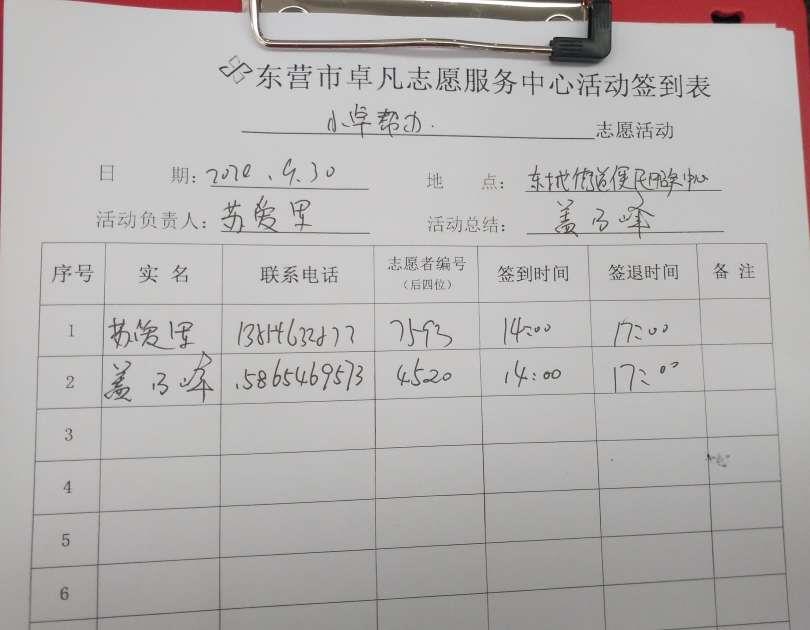 东营市卓凡志愿服务中心活动签到表
小卓帮办 志愿活动
日 期: 9.30 地 点: 便民服务中心
活动负责人: 苏爱 活动总结: 盖乃峰
序号 实名 联系电话 志愿者编号(后四位) 签到时间 签退时间 备注
1 苏爱 7593 14:00 17:00
2 盖乃峰 15865469573 4520 14:00 17:00
3
4
5
6